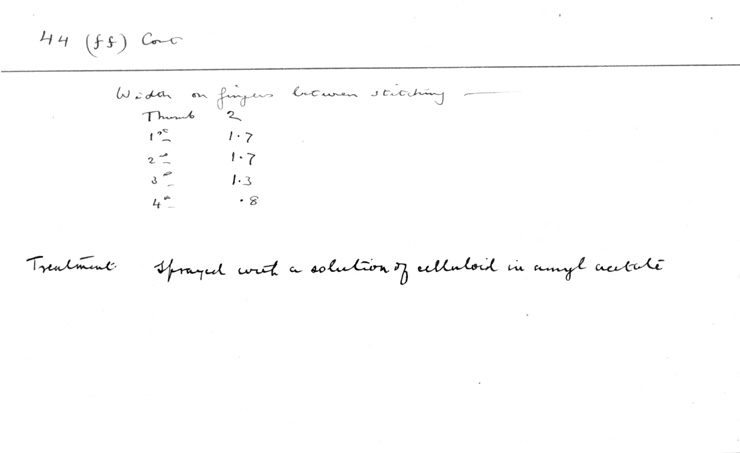 44 (ff) Cont
Width on fingers between stitching —
Thumb 2
1st 1.7
2nd 1.7
3rd 1.3
4th .8
Treatment. Sprayed with a solution of celluloid in amyl acetate